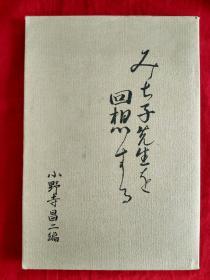 みち子先生を
回想する
小野寺昌二編